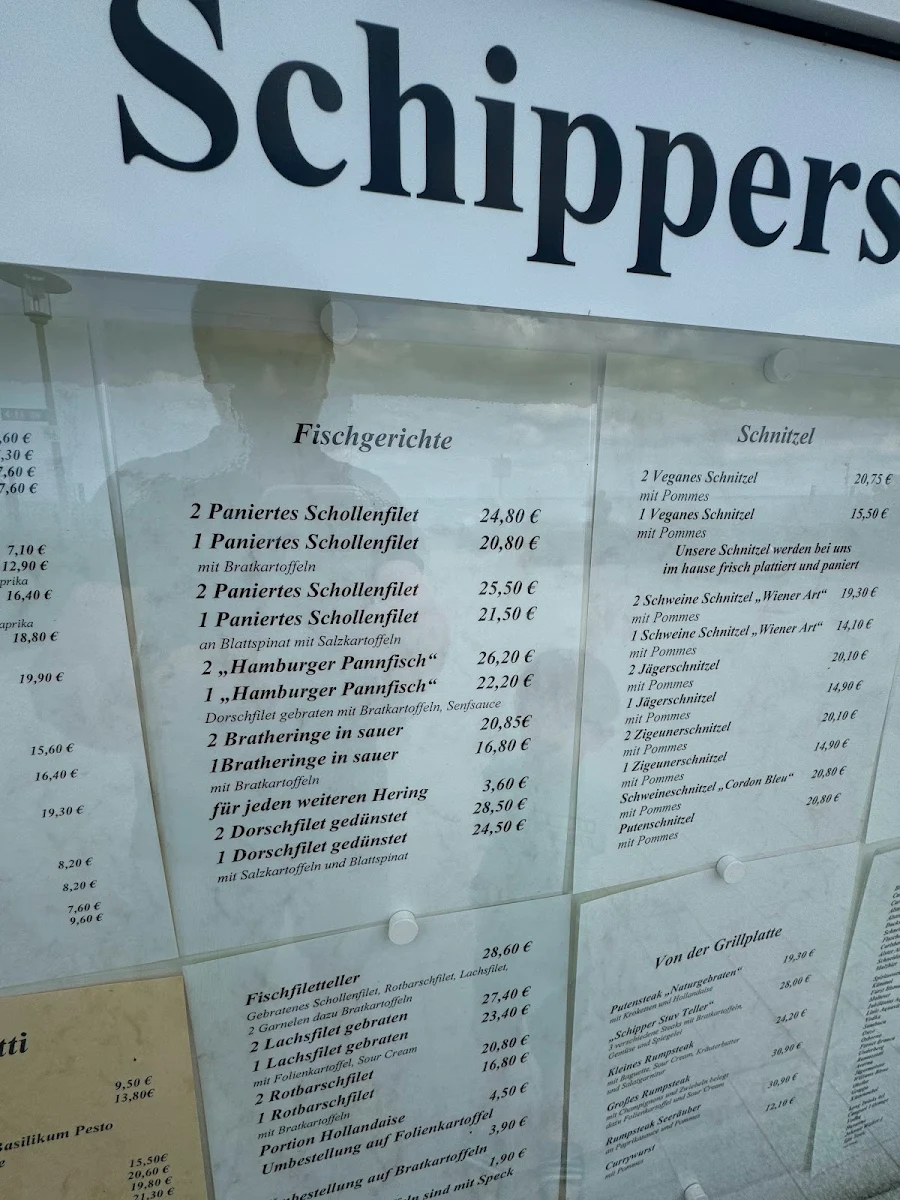 Schippers
,60 €
,30 €
7,60 €
7,60 €
7,10 €
12,90 €
prika
16,40 €
aprika
18,80 €
19,90 €
15,60 €
16,40 €
19,30 €
8,20 €
8,20 €
7,60 €
9,60 €
Fischgerichte
2 Paniertes Schollenfilet 24,80 €
1 Paniertes Schollenfilet 20,80 €
mit Bratkartoffeln
2 Paniertes Schollenfilet 25,50 €
1 Paniertes Schollenfilet 21,50 €
an Blattspinat mit Salzkartoffeln
2 „Hamburger Pannfisch“ 26,20 €
1 „Hamburger Pannfisch“ 22,20 €
Dorschfilet gebraten mit Bratkartoffeln, Senfsauce
2 Bratheringe in sauer 20,85€
1Bratheringe in sauer 16,80 €
mit Bratkartoffeln
für jeden weiteren Hering 3,60 €
2 Dorschfilet gedünstet 28,50 €
1 Dorschfilet gedünstet 24,50 €
mit Salzkartoffeln und Blattspinat
Schnitzel
2 Veganes Schnitzel 20,75 €
mit Pommes
1 Veganes Schnitzel 15,50 €
mit Pommes
Unsere Schnitzel werden bei uns
im hause frisch plattiert und paniert
2 Schweine Schnitzel „Wiener Art“ 19,30 €
mit Pommes
1 Schweine Schnitzel „Wiener Art“ 14,10 €
mit Pommes
2 Jägerschnitzel 20,10 €
mit Pommes
1 Jägerschnitzel 14,90 €
mit Pommes
2 Zigeunerschnitzel 20,10 €
mit Pommes
1 Zigeunerschnitzel 14,90 €
mit Pommes
Schweineschnitzel „Cordon Bleu“ 20,80 €
mit Pommes
Putenschnitzel 20,80 €
mit Pommes
tti
9,50 €
13,80€
Basilikum Pesto
15,50€
20,60 €
19,80 €
21,30 €
Fischfiletteller 28,60 €
Gebratenes Schollenfilet, Rotbarschfilet, Lachsfilet,
2 Garnelen dazu Bratkartoffeln
2 Lachsfilet gebraten 27,40 €
1 Lachsfilet gebraten 23,40 €
mit Folienkartoffel, Sour Cream
2 Rotbarschfilet 20,80 €
1 Rotbarschfilet 16,80 €
mit Bratkartoffeln
Portion Hollandaise 4,50 €
Umbestellung auf Folienkartoffel 3,90 €
bestellung auf Bratkartoffeln 1,90 €
ln sind mit Speck
Von der Grillplatte
Putensteak „Naturgebraten“ 19,30 €
mit Kroketten und Hollandaise
„Schipper Stuv Teller“ 28,00 €
3 verschiedene Steaks mit Bratkartoffeln,
Gemüse und Spiegelei
Kleines Rumpsteak 24,20 €
mit Baguette, Sour Cream, Kräuterbutter
und Salatgarnitur
Großes Rumpsteak 30,90 €
mit Champignons und Zwiebeln belegt
dazu Folienkartoffel und Sour Cream
Rumpsteak Seeräuber 30,90 €
an Paprikamais und Pommes
Currywurst 12,10 €
mit Pommes